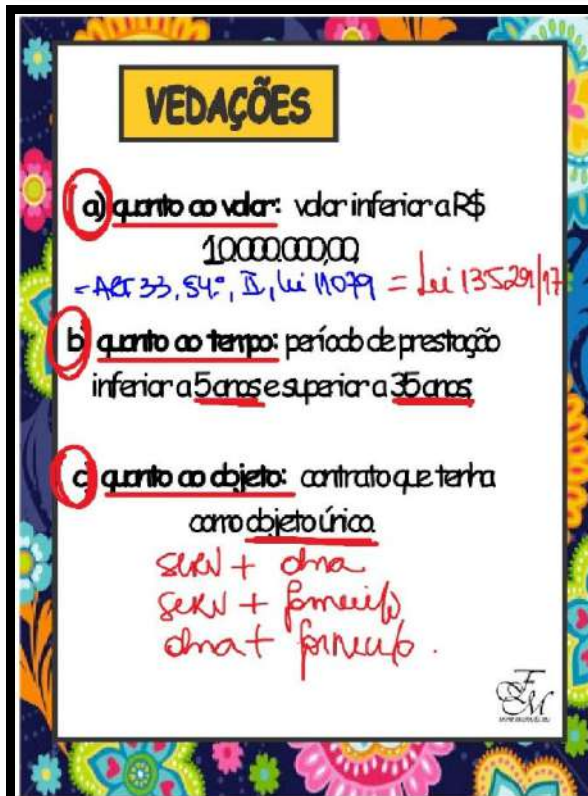 VEDAÇÕES
a) quanto ao valor: valor inferior a R$
10.000.000,00;
- Art 33, §4º, II, Lei 11079 = Lei 13529/17
b) quanto ao tempo: período de prestação
inferior a 5 anos e superior a 35 anos;
c) quanto ao objeto: contrato que tenha
como objeto único.
SERV + obra
SERV + fornecito
obra + fornecito.
FM